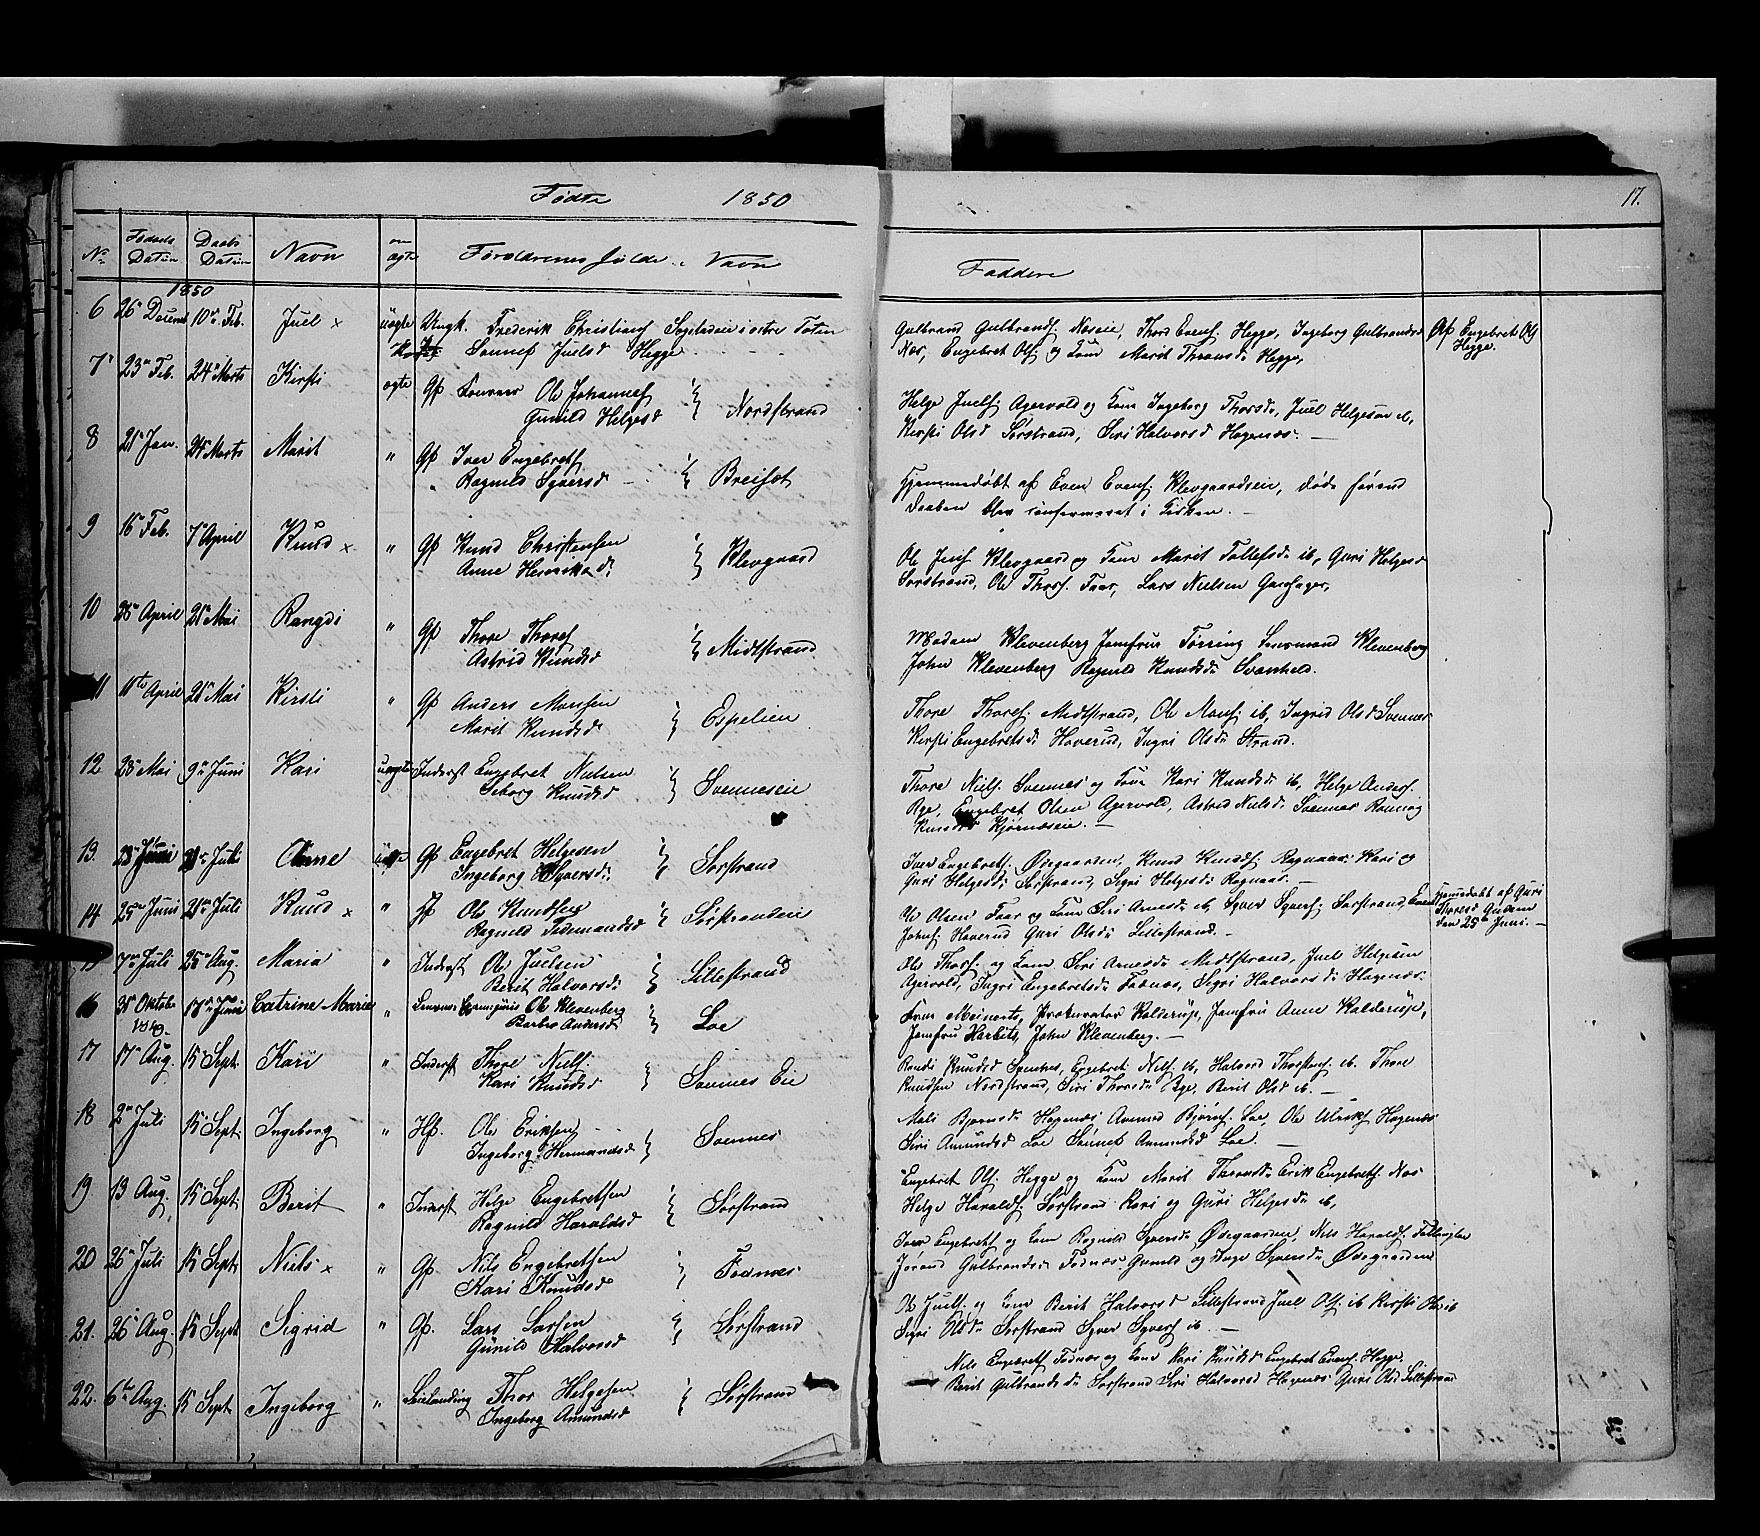 Födte 1850
17.
No Födsels Datum Daabs Datum Navn om ægte Forældrenes fulde Navn
Faddere
1850
6 26 Decemb 10de Feb. Juel x uægte Ungk. Frederik Christians
Hegge
Gulbrand Gulbrands. Noseie, Thord Evens. Hegge, Ingeborg Gulbrandsd
Nos, Engebret Ols og Kone Marit Hegge,
Af Engebret Ols
Hegge.
7 23de Feb. 24de Marts Kirsti ægte Gp Ole Johannes
Gunild Helgesd } Nordstrand
Helge Juels. Agervold og Kone Ingeborg Thorsd., Juel Helgesen ib,
Kirsti Olsd Sørstrand, Siri Halvorsd Hagenæs. —
8 21 Jan. 24 Marts Marit " Gp Iver Engebrets
Ragnild Syversd } Breiset
Hjemmedøbt af Even Evens. Klevgaardseie, døde førend
Daaben blev confirmeret i Kirken. —
9 16 Feb. 7de April Knud x " Gp Knud Christensen
Anne Henriksd. } Klevgaard
Ole Jens Klevgaard og Kone Marit Tollefsd. ib, Guri Helgesd
Sørstrand, Ole Thors. Faar, Lars Nielsen
10 28de April 21de Mai Rangdi " Gp Thore Thores
Astrid Knudsd } Midtstrand
Madam Klevenberg Jomfrue Lensmand Klevenberg
John Klevenberg Ragnild Knudsd.
11 11te April 21de Mai Kirsti " Gp Anders Monsen
Marit Knudsd } Espelien
Thore Thores. Midtstrand, Ole Mons. ib, Ingrid Olsd Svennes
Kirsti Engebretsd. Haverud, Ingri Olsd. Strand.
12 28 Mai 9de Juni Kari uægte Inderst Engebret Nielsen
Seborg Knudsd } Svenneseie
Thore Niels. Svennes og Kone Kari Knudsd. ib, Helge Anders.
Rye, Engebret Olsen Agervold, Astrid Nielsd. Svennes
Knudsd —
13. 23 21de Juli Anne Gp Engebret Helgesen
Ingeborg Syversd. } Sørstrand
Iver Engebrets. Ødegaarden, Knud Knuds. Kari og
Guri Helgesd. Sørstrand, Sigri Helgesd. —
14 25de Juni 21de Juli Knud x " Gp Ole Knudsen
Ragnild Tidemandsd } Sørstrandeie
Ole Olsen Faar og Kone Siri Arnesd. ib, Syver Syvers. Sørstrand,
Johns. Haverud Guri Olsd. Lillestrand. —
Hjemmedøbt af Guri
Thoresd
den 25de Juni. —
15 7de Juli 25de Aug. Maria " Inderst Ole Juelsen
Berit Halvorsd. } Lillestrand
Ole Thors. og Kone Siri Arnesd. Midtstrand, Juel Helgesen
Agervold, Ingri Engebretsd. Fodnæs, Sigri Halvorsd. Hagenæs.
16 31 Oktober
1849. 17de Juni Catrine Marie " Ole Klevenberg
Barbro Andersd. } Loe
Fru Meinerts, Prokurator Kalderup, Jomfru Anne Kalderup,
Jomfru John Klevenberg. —
17 17de Aug. 15 Sept. Kari " Inderst Thore Niels.
Kari Knudsd } Svennes Eie
Randi Knudsd Svennes, Engebret Niels. ib, Halvord Thorstens. ib. Thore
Knudsen Nordstrand, Siri Thorsd. Rye, Berit Olsd ib. —
18 2de Juli 15 Sept. Ingeborg " Hp. Ole Eriksen
Ingeborg Hermandsd } Svennes
Mali Bjørnsd. Hagenæs Amund Bjørns. Loe, Ole Ulriks. Hagenæs
Siri Amundsd Loe Amundsd Loe. —
19 13 Aug. 15 Sept. Berit " Inderst Helge Engebretsen
Ragnild Haraldsd } Sørstrand
Engebret Ols. Hegge og Kone Marit Erik Engebrets. Nos
Helge Haralds. Sørstrand Kari og Guri Helgesd. ib,
20 26de Juli 15 Sept. Niels x " Gp. Nils Engebretsen
Kari Knudsd } Fodnæs
Iver Engebrets og Kone Ragnild Syversd. Ødegaarden, Nils Haralds.
Jørand Gulbrandsd. Fodnæs Gunild og Inge Syversd. Ødegaarden
21. 26 Aug. 15 Sept Sigrid " Gp. Lars Larsen
Gunild Halvorsd } Sørstrand
Ole Juels. og Kone Berit Halvorsd Lillestrand Juel Ols. ib Kirsti Ols. ib
Sigri Olsd. Sørstrand Syver Syvers ib. —
22. 6te Aug. 15 Sept Ingeborg " Leilænding Thor Helgesen
Ingeborg Amundsd } Sørstrand
Nils Engebrets Fodnæs og Kone Kari Knudsd Engebret Evens. Hegge,
Berit Gulbrandsd. Sørstrand Siri Halvorsd Hagenæs. Guri Olsd Lillestrand